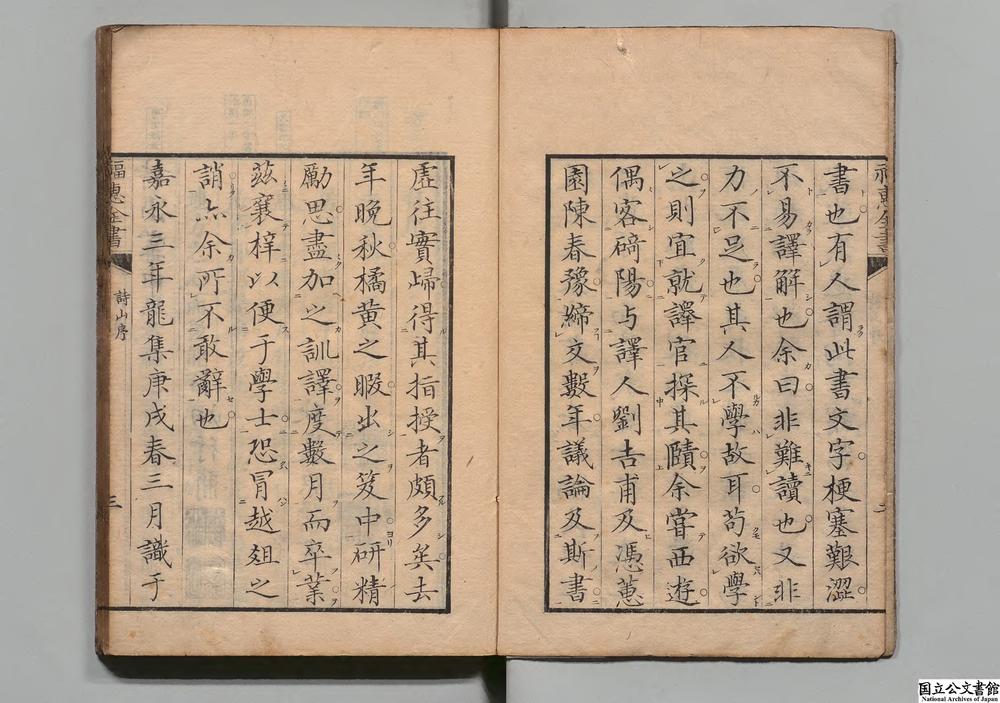 書也有人謂此書文字梗塞艱澀
不易譯解也余曰非難讀也又非
力不足也其人不學故耳苟欲學
之則宜就譯官探其賾余嘗西遊
偶客碕陽与譯人劉吉甫及馮蕙
園陳春豫締文數年議論及斯書
虗往實歸得其指授者頗多矣去
年晚秋橘黃之暇出之笈中研精
勵思盡加之訓譯度數月而卒業
茲襄梓以便于學士恐冐越俎之
誚亦余所不敢辭也
嘉永三年龍集庚戌春三月識于
福惠全書
詩山序
三
国立公文書館
National Archives of Japan